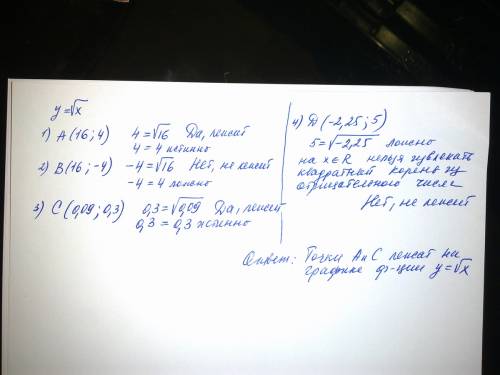 y=√x
1) A(16; 4) 4=√16 Да, лежит
4 = 4 истинно
2) B(16; -4) -4=√16 Нет, не лежит
-4 = 4 ложно
3) C(0,09; 0,3) 0,3=√0,09 Да, лежит
0,3 = 0,3 истинно
4) D(-2,25; 5)
5=√-2,25 ложно
на x∈R нельзя извлекать
квадратный корень из
отрицательного числа
Нет, не лежит
Ответ: Точки A и C лежат на
графике ф-ции y=√x